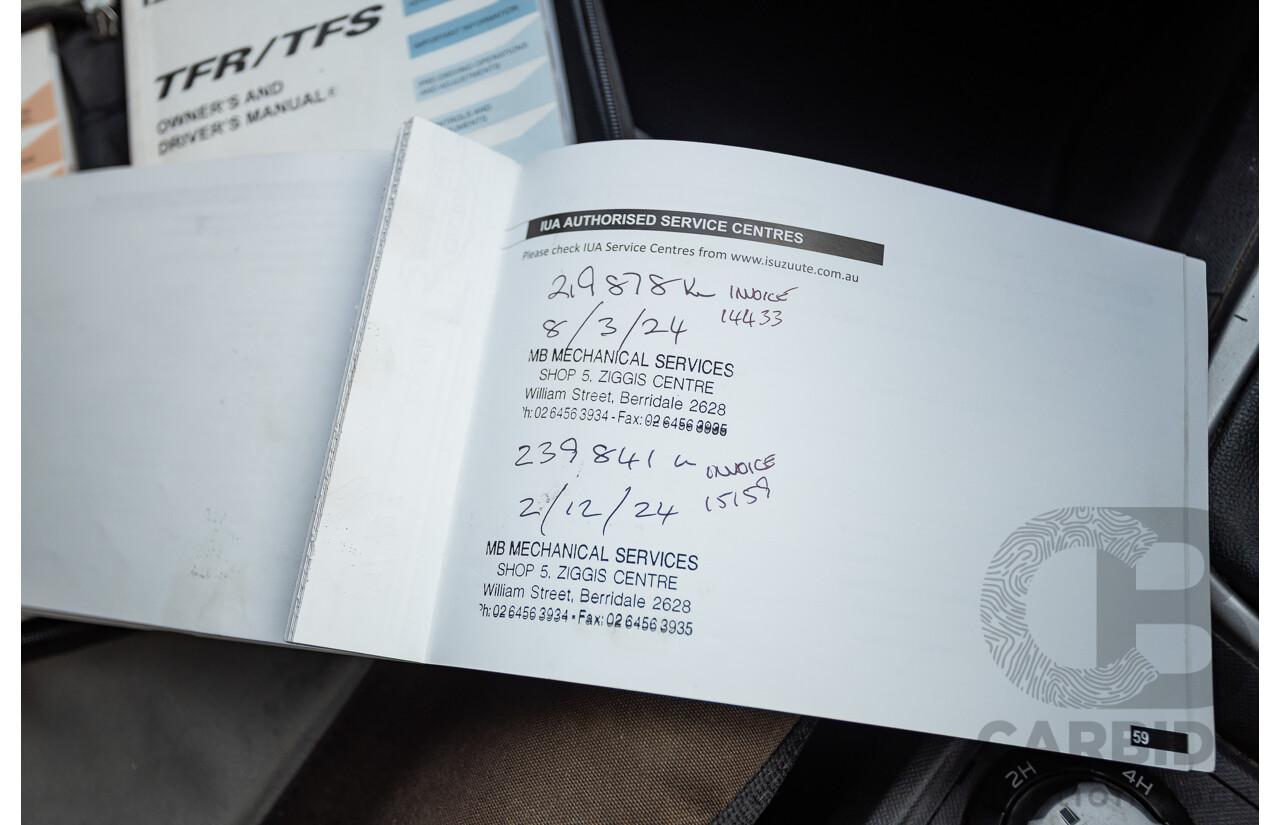 TFR/TFS
OWNER'S AND
DRIVER'S MANUAL
IMPORTANT INFORMATION
PRE-DRIVING OPERATIONS
AND ADJUSTMENTS
CONTROLS AND
IUA AUTHORISED SERVICE CENTRES
Please check IUA Service Centres from www.isuzuute.com.au
219878 Km INVOICE
14433
8/3/24
MB MECHANICAL SERVICES
SHOP 5. ZIGGIS CENTRE
William Street, Berridale 2628
Ph: 02 6456 3934 - Fax: 02 6456 3935
239841 INVOICE
15159
2/12/24
MB MECHANICAL SERVICES
SHOP 5. ZIGGIS CENTRE
William Street, Berridale 2628
Ph: 02 6456 3934 - Fax: 02 6456 3935
59
CARBID
2H 4H